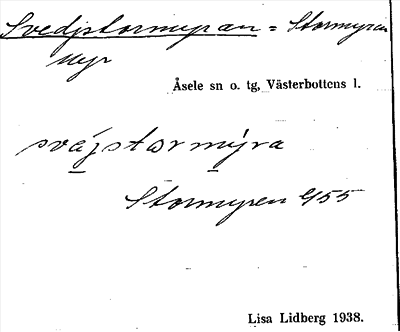 Svedjstormyran = Stormyren
Myr
Åsele sn o. tg, Västerbottens l.
svéjstormýra
Stormyren 455
Lisa Lidberg 1938.